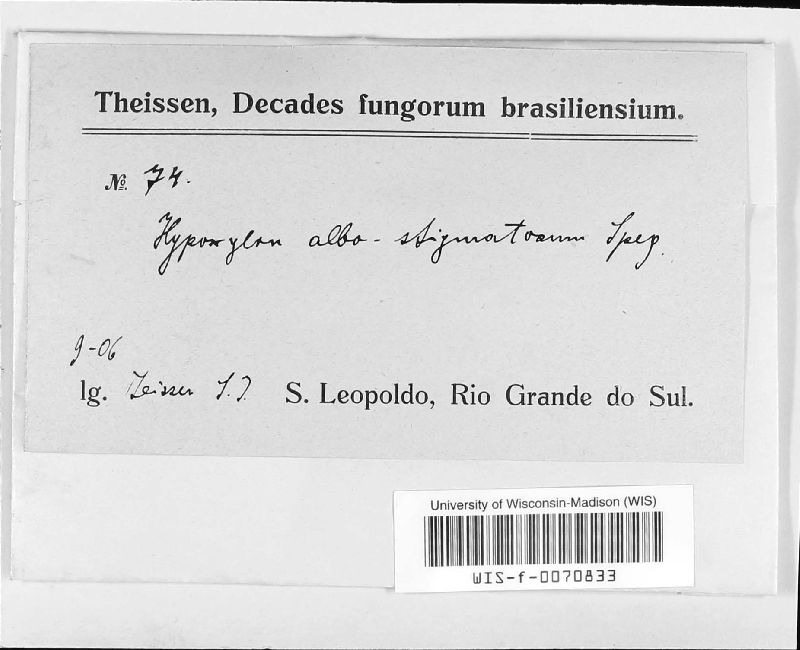 Theissen, Decades fungorum brasiliensium.
№. 74.
Hypoxylon albo-stigmatosum Speg.
9-06
lg. Theissen S.J. S. Leopoldo, Rio Grande do Sul.
University of Wisconsin-Madison (WIS)
WIS-f-0070833